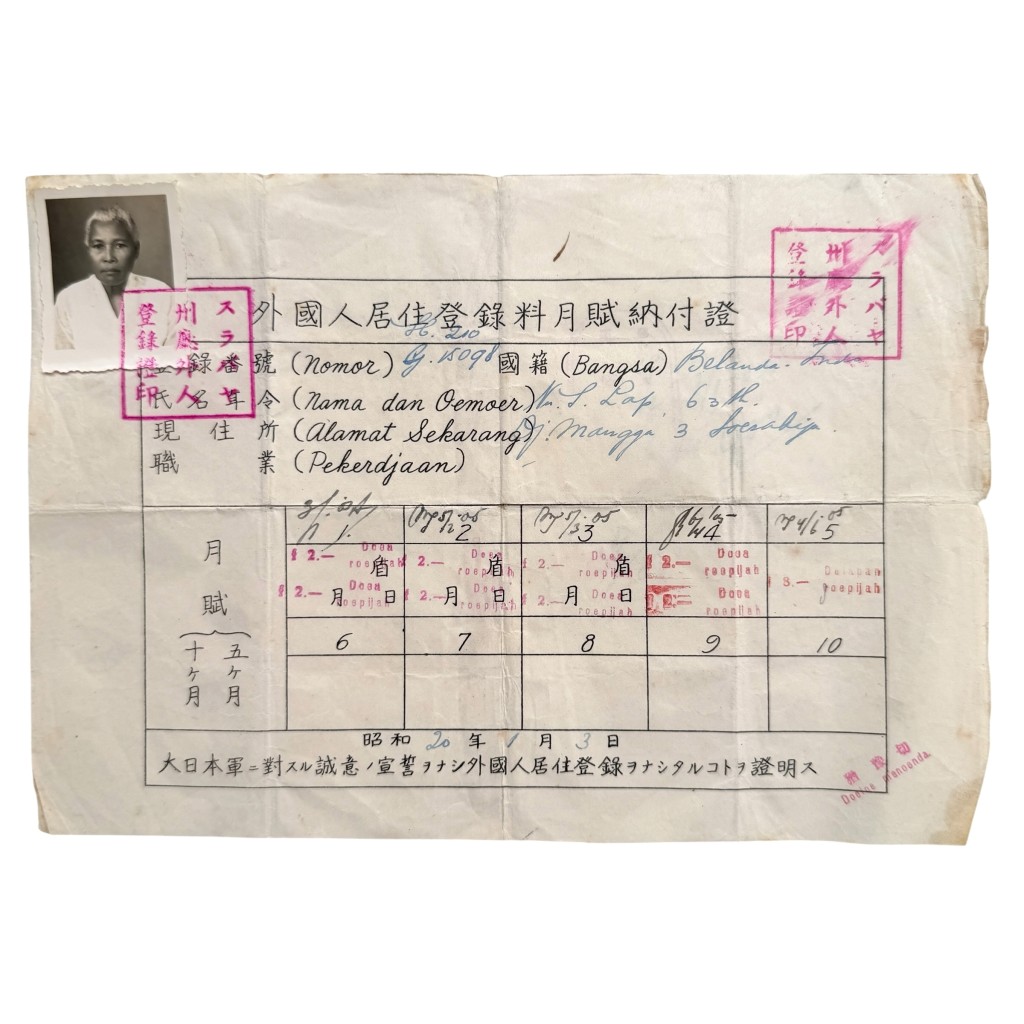 外國人居住登錄料月賦納付證
H. 210
錄番號 (Nomor) G. 15098 國籍 (Bangsa) Belanda-Indo
氏名年令 (Nama dan Oemoer) 63 th.
現住所 (Alamat Sekarang) Dj. Mangga 3
職業 (Pekerdjaan)
スラバヤ
州廳外人
登錄證印
スラバヤ
州廳外人
登錄證印
月賦
五ヶ月
十ヶ月
1 2 3 4 5
f 2.— Doea roepijah
f 2.— Doea roepijah
f 2.— Doea roepijah
f 2.— Doea roepijah
f 2.— Doea roepijah
f 2.— Doea roepijah
f 2.— Doea roepijah
f 2.— Doea roepijah
盾 盾 盾
月 日 月 日 月 日
6 7 8 9 10
昭和 20 年 1 月 3 日
大日本軍ニ對スル誠意ノ宣誓ヲナシ外國人居住登錄ヲナシタルコトヲ證明ス